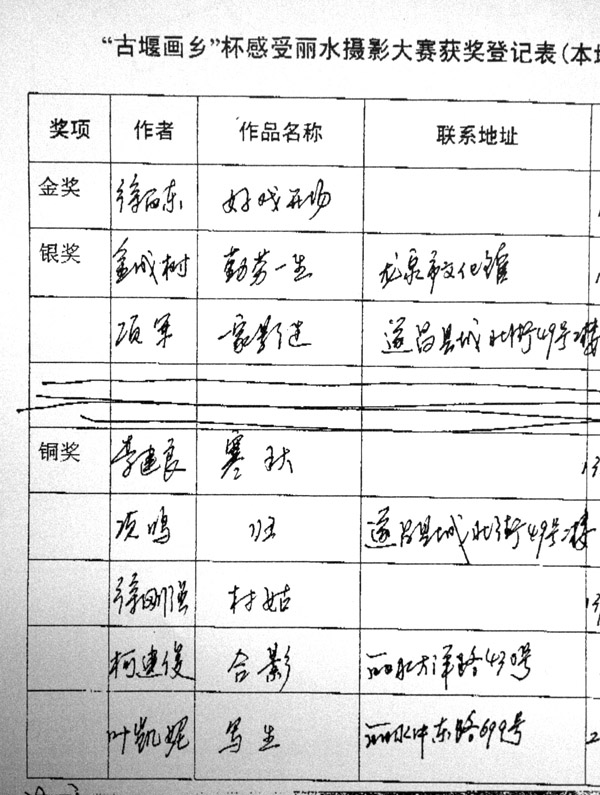 “古堰画乡”杯感受丽水摄影大赛获奖登记表(本
奖项 作者 作品名称 联系地址
金奖 徐丽东 好戏开场
银奖 金成树 勤劳一生 龙泉市文化馆
项军 家影迷 遂昌县城北街49号2楼
铜奖 李建良 寒秋
项鸣 归 遂昌县城北街49号2楼
徐刚强 村姑
柯建俊 合影 丽水大洋路430号
叶凯妮 写生 丽水中东路699号